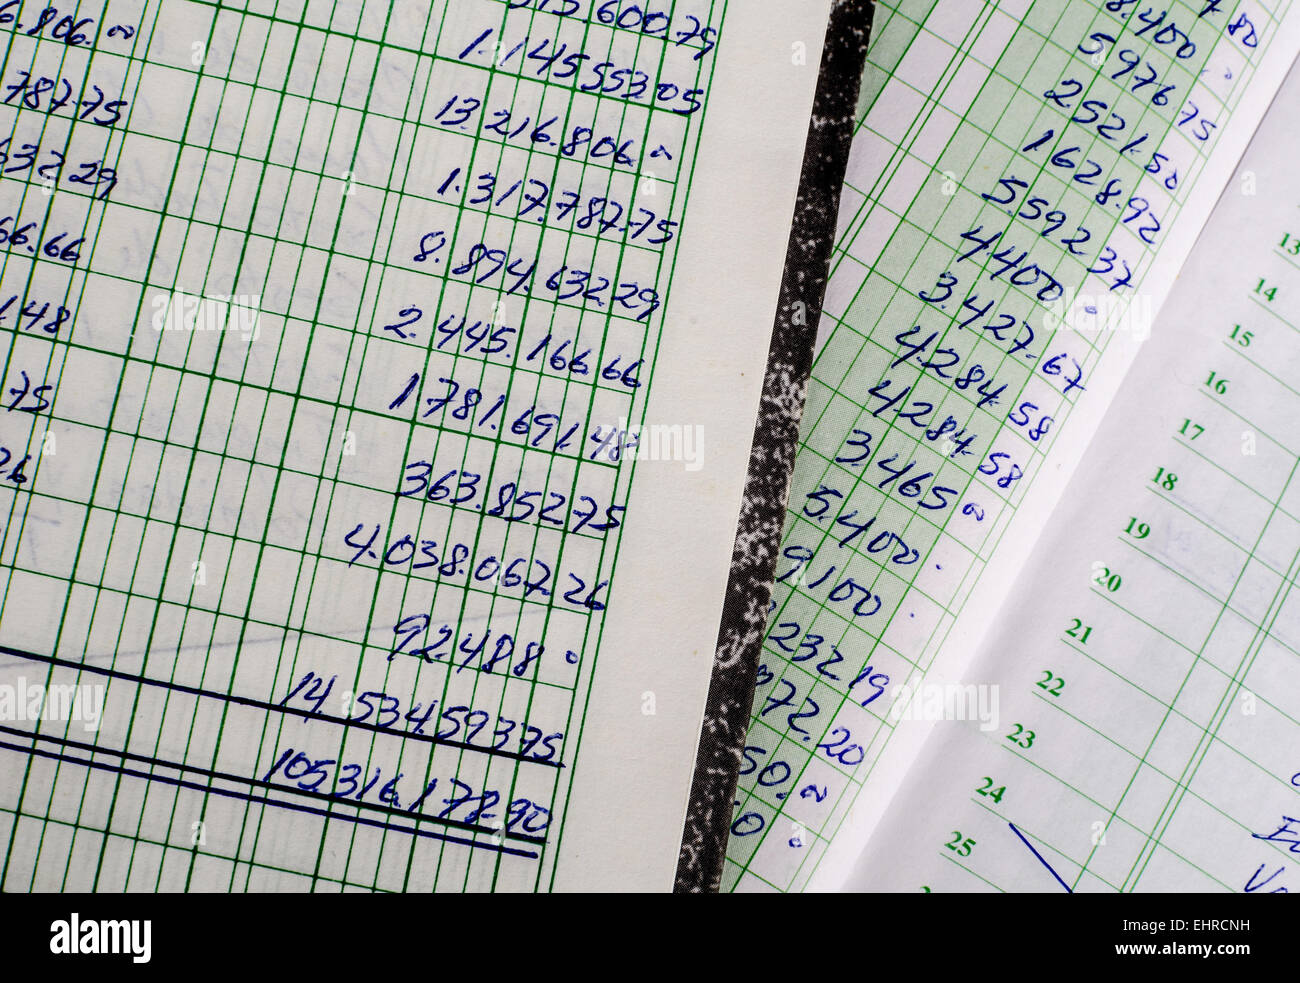 6.806.00
787.75
632.29
66.66
1.48
75
26
600.79
1.145.553.05
13.216.806.00
1.317.787.75
8.894.632.29
2.445.166.66
1.781.691.48
363.852.75
4.038.067.26
92.488 0
14.534.593.75
105316.178.90
7.80
8.400 0
5976.75
2521.50
1628.92
5.592.37
4400 0
3.427.67
4.284.58
4284.58
3.465 00
5.400.
9100.
232.19
972.20
50.00
.0 0
13
14
15
16
17
18
19
20
21
22
23
24
25
alamy
a
alamy stock photo
Image ID: EHRCNH
www.alamy.com